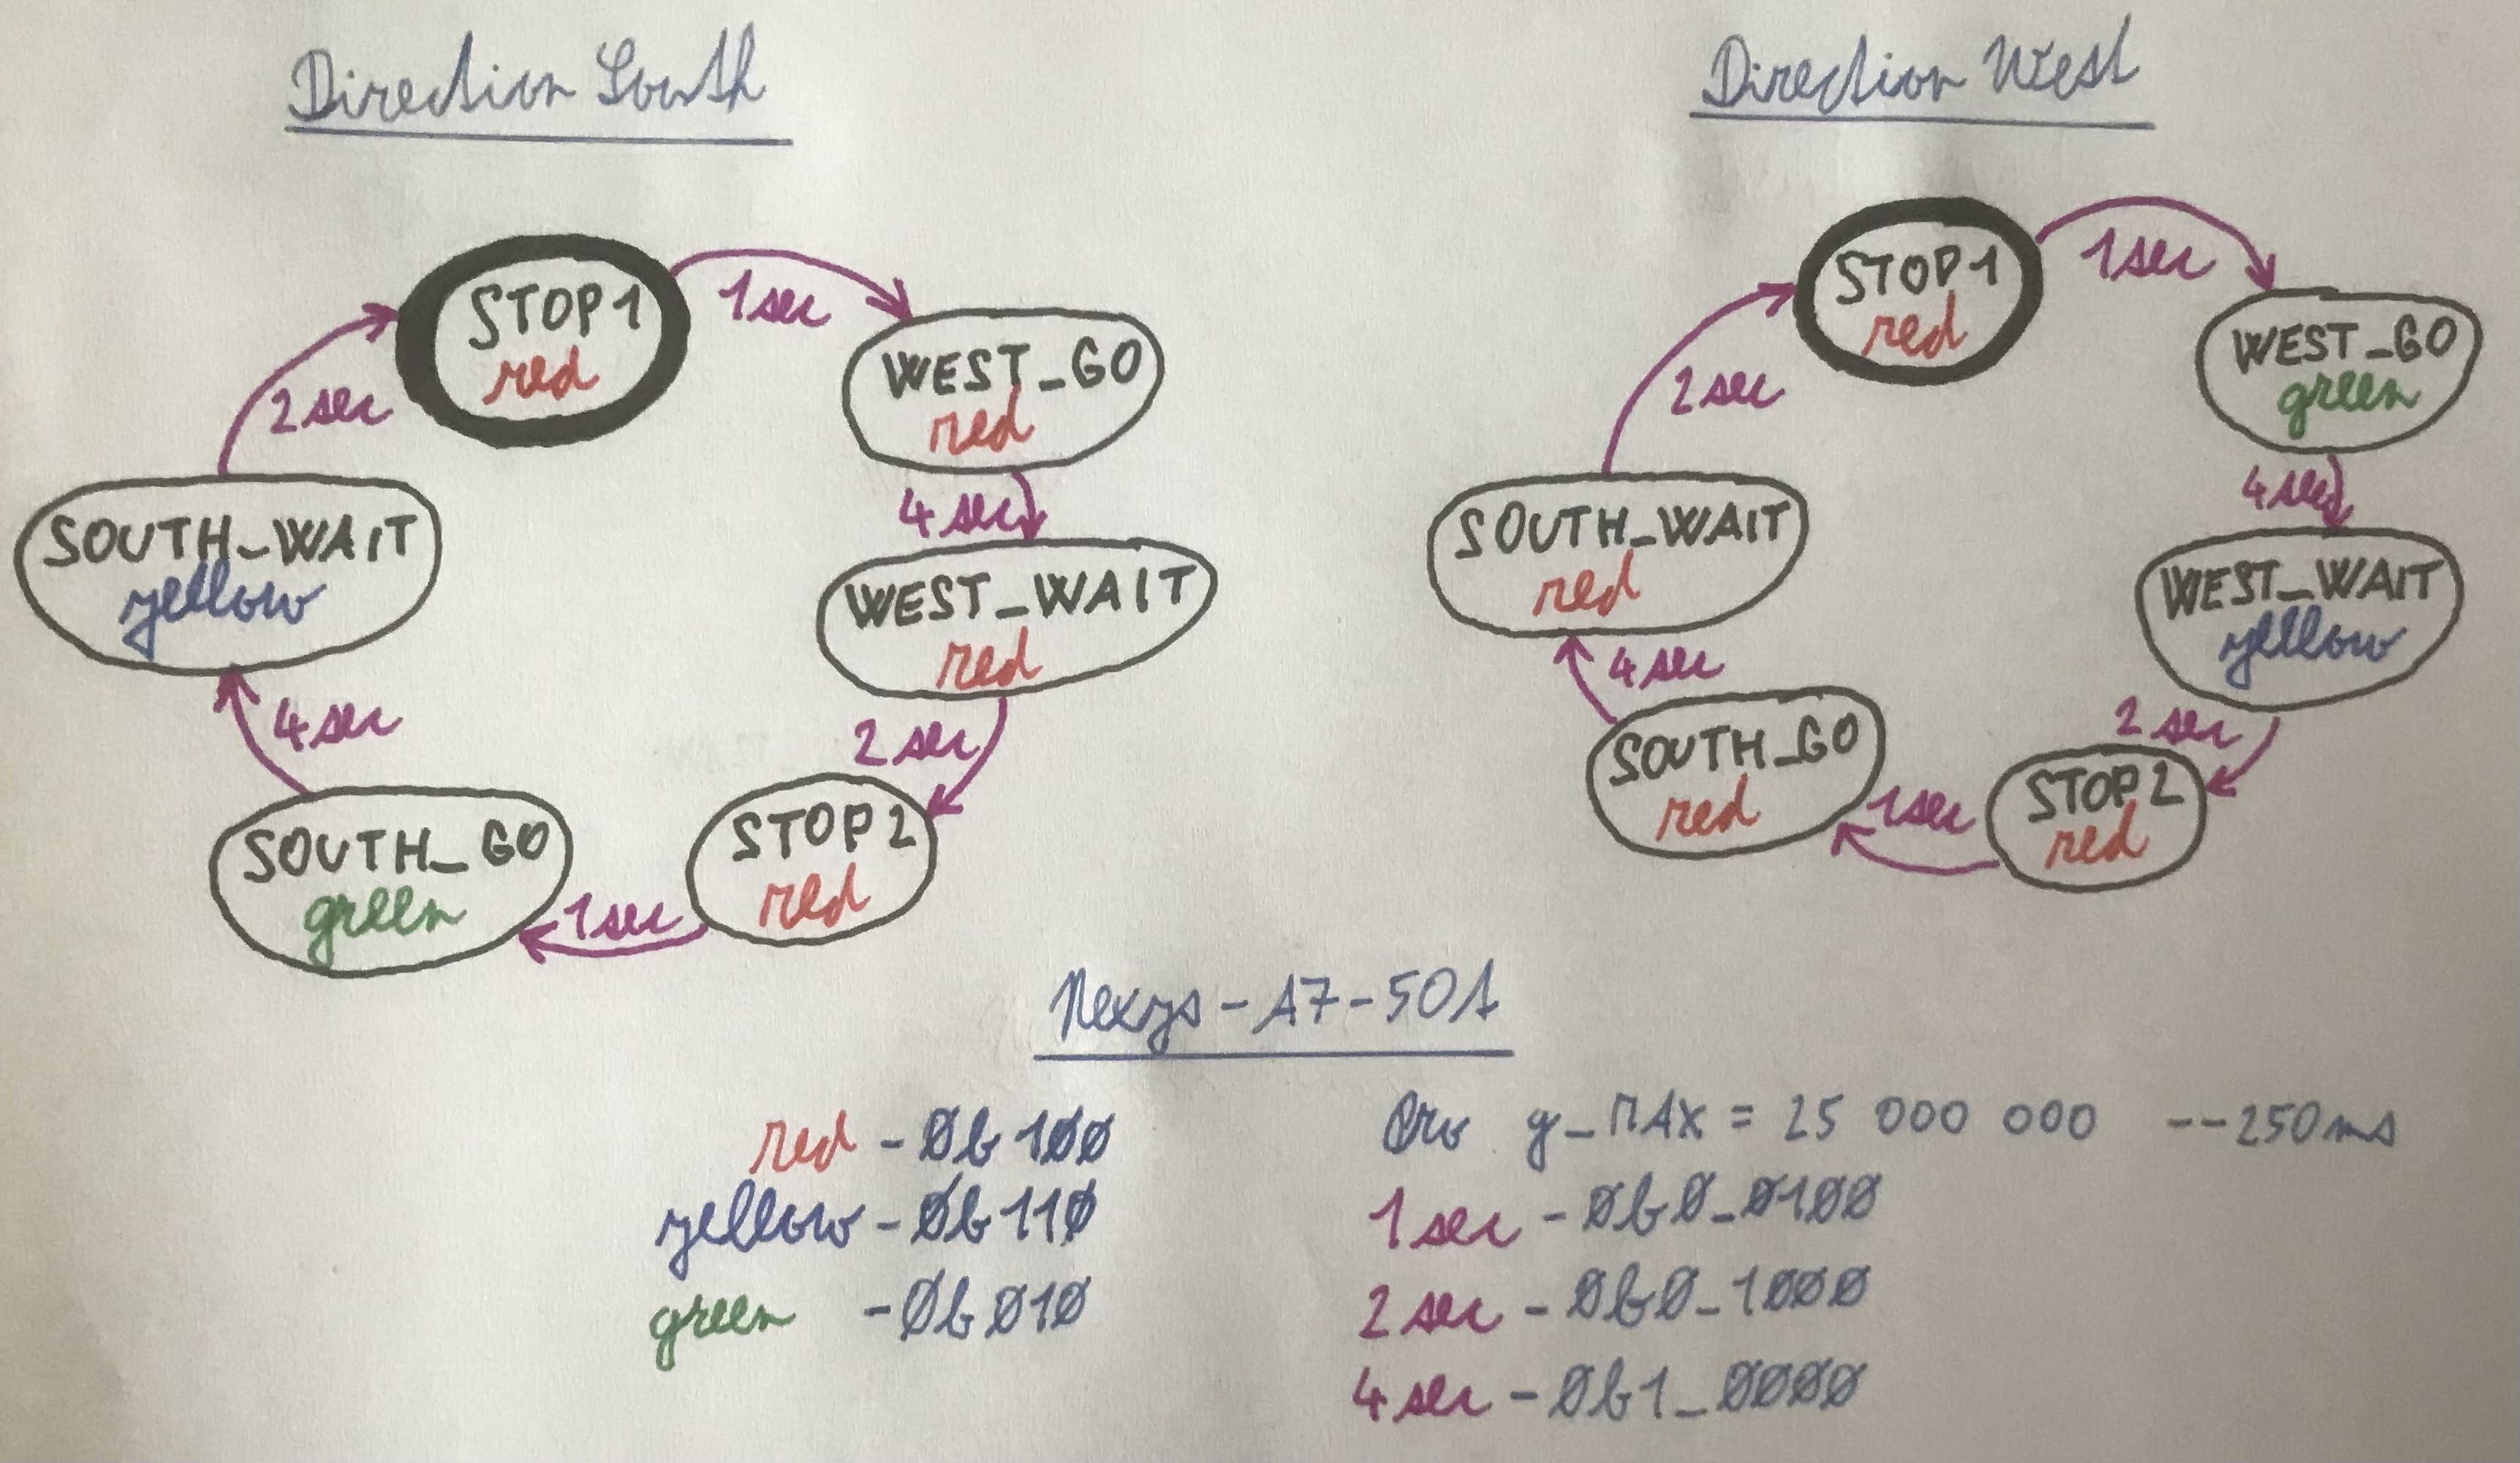 Direction South
STOP1
red
1sec
WEST_GO
red
4 sec
WEST_WAIT
red
2 sec
STOP2
red
1sec
SOUTH_GO
green
4 sec
SOUTH_WAIT
yellow
2 sec
Direction West
STOP1
red
1sec
WEST_GO
green
4 sec
WEST_WAIT
yellow
2 sec
STOP2
red
1sec
SOUTH_GO
red
4 sec
SOUTH_WAIT
red
2 sec
Nexys-A7-50T
red - 0b100
yellow - 0b110
green - 0b010
Pro g_MAX = 25 000 000 --250ms
1 sec - 0b0_0100
2 sec - 0b0_1000
4 sec - 0b1_0000